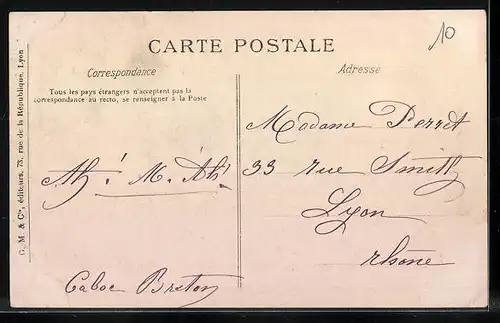 10
CARTE POSTALE
Correspondance
Adresse
Tous les pays étrangers n'acceptent pas la
correspondance au recto, se renseigner à la Poste
Ah! M. Ah!
Caboc Breton
Madame Perret
33 rue Smith
Lyon
rhône
G. M. & Cie, éditeurs, 73, rue de la République, Lyon